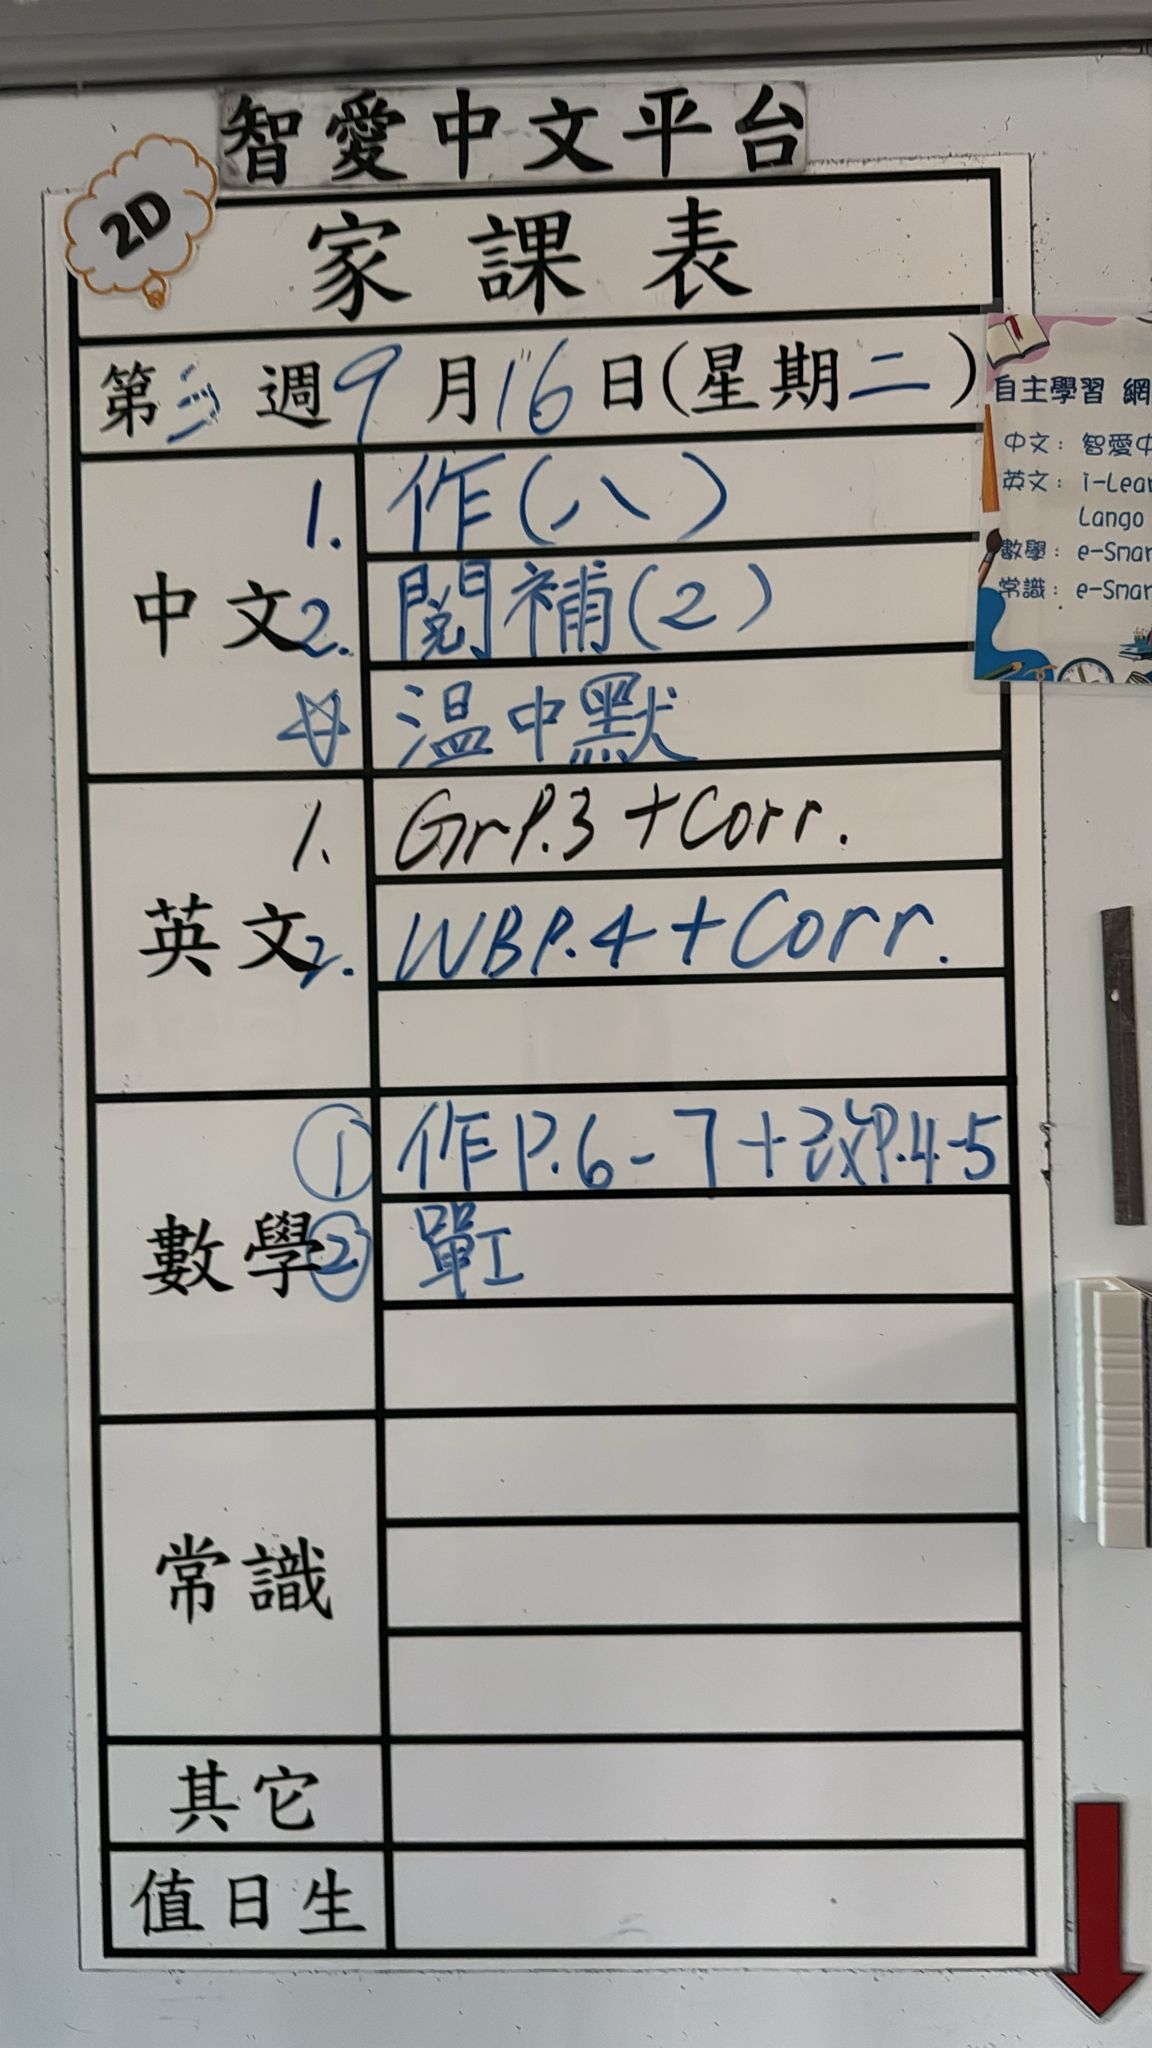 智愛中文平台
2D
家課表
第三週9月16日(星期二)
中文
1. 作(八)
2. 閱補(2)
☆ 溫中默
英文
1. Gr P.3 + Corr.
2. WB P.4 + Corr.
數學
① 作P.6-7+改P.4-5
② 單工
常識
其它
值日生
自主學習 網
中文: 智愛中
英文: i-Lear
Lango
數學: e-Smar
常識: e-Smar